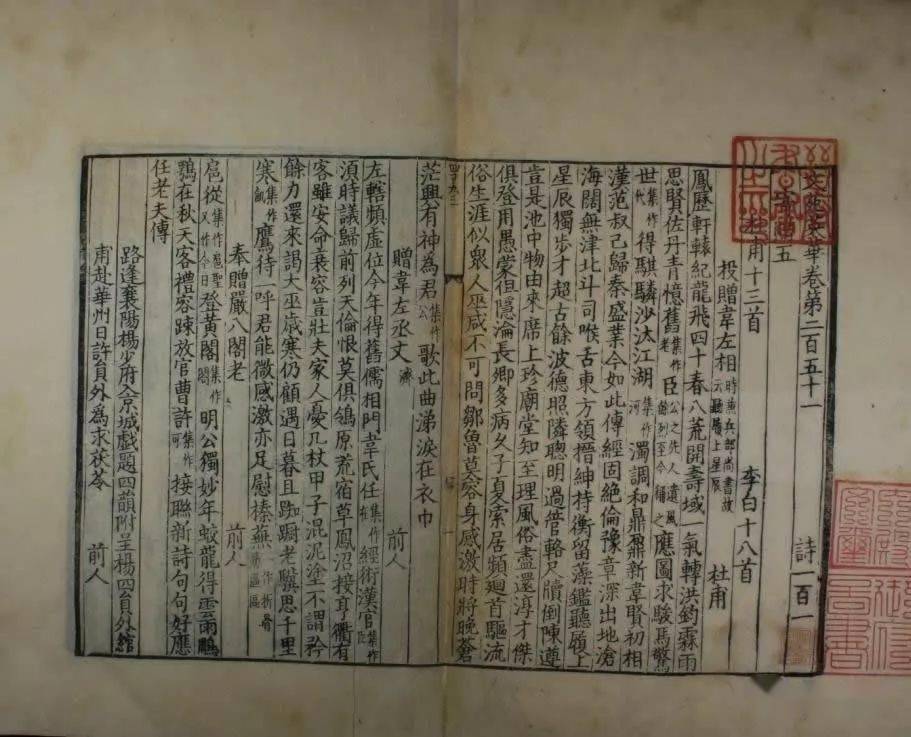 文苑英華卷第二百五十一 詩一百一
五
杜甫十三首 李白十八首
投贈韋左相 時兼兵部尚書故云聽履上星辰 杜甫
鳳歷軒轅紀龍飛四十春八荒開壽域一氣轉洪鈞霖雨
思賢佐丹青憶舊集作老臣公之先人遺風餘烈至今稱之應圖求駿馬驚
世集作代得騏驎沙汰江湖集作河濁調和鼎鼐新韋賢初相
漢范叔已歸秦盛業今如此傳經固絕倫豫章深出地滄
海闊無津北斗司喉舌東方領搢紳持衡留藻鑑聽履上
星辰獨步才超古餘波德照隣聰明過管輅尺牘倒陳遵
豈是池中物由來席上珍廟堂知至理風俗盡還淳才傑
俱登用愚蒙但隱淪長卿多病久子夏索居頻廻首驅流
俗生涯似衆人巫咸不可問鄒魯莫容身感激時將晚蒼
茫興有神為君集作公歌此曲涕淚在衣巾
贈韋左丞文濟 前人
左轄頻虛位今年得舊儒相門韋氏任集作在經術漢官集作臣
須時議歸前列天倫恨莫俱鴒原荒宿草鳳沼接亨衢有
客雖安命衰容豈壯夫家人憂几杖甲子混泥塗不謂矜
餘力還來謁大巫歲寒仍顧遇日暮且踟蹰老驥思千里
寒集作飢鷹待一呼君能微感激亦足慰榛蕪
奉贈嚴八閣老 前人
扈從集作扈聖又作今日登黃閣集作閤明公獨妙年蛟龍得雲雨鵰
鶚在秋天客禮容踈放官曹許集作可接聯新詩句句好應
任老夫傳
路逢襄陽楊少府入京城戲題四韻附呈楊四員外綰
甫赴華州日許員外為求茯苓 前人